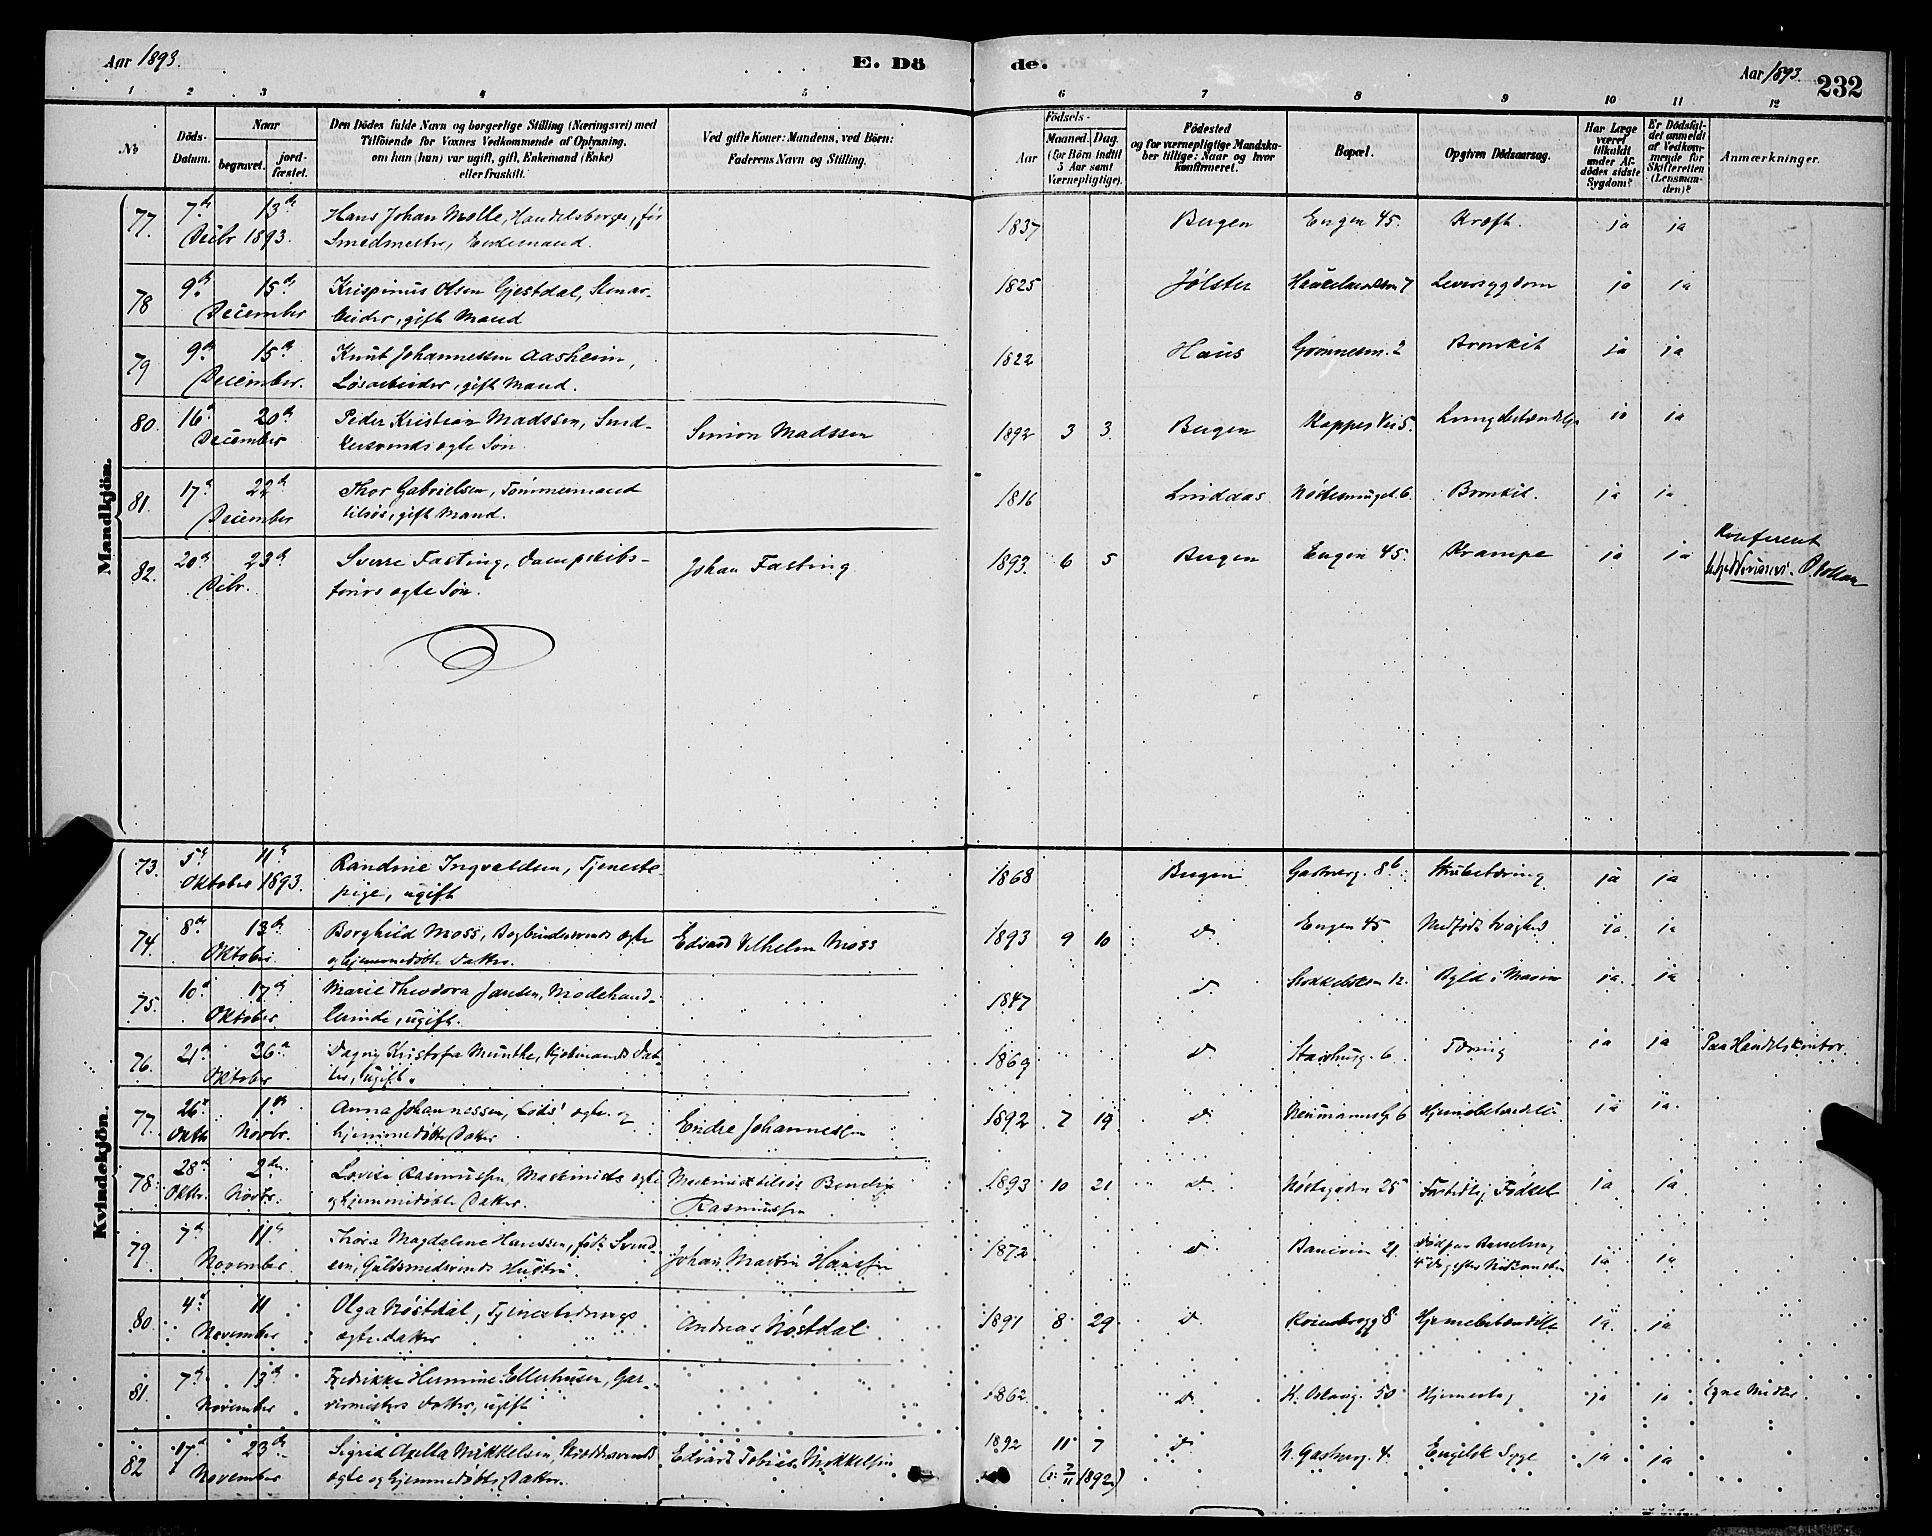 Aar 1893.
E. Dö
de.
Aar 1893.
232
1 2 3 4 5 6 7 8 9 10 11 12
No
Döds-Datum.
Naar
begravet.
jord-fæstet.
Den Dödes fulde Navn og borgerlige Stilling (Næringsvei) med
Tilföiende for Voxnes Vedkommende af Oplysning,
om han (hun) var ugift, gift, Enkemand (Enke)
eller fraskilt.
Ved gifte Koner: Mandens, ved Börn:
Faderens Navn og Stilling.
Födsels-
Aar
Maaned. Dag.
(for Börn indtil
5 Aar samt
Værnepligtige).
Födested
og for værnepligtige Mandska-
ber tillige: Naar og hvor
konfirmeret.
Bopæl.
Opgiven Dödsaarsag.
Har Læge
været
tilkaldt
under Af-
dödes sidste
Sygdom?
Er Dödsfal-
det anmeldt
af Vedkom-
mende for
Skifteretten
(Lensman-
den)?
Anmærkninger.
Mandkjön.
77. 7de 13de Hans Johan Molle, Handelsborger, før 1837 Bergen Engen 45. Kræft. ja ja
Decbr 1893. Smedmester, Enkemand.
78 9de 15de Krispinus Olsen Gjestdal, Stenar- 1825 Jølster 7 Leversygdom ja ja
December beider, gift Mand
79 9de 15de Knut Johannessen Aasheim, 1822 Haus 2 Bronkit ja ja
December. Løsarbeider, gift Mand.
80. 16de 20de Peder Kristian Madssen, Smed- Simon Madssen 1892 3 3. Bergen Kappes Vei 5. Lungebetændelse ja ja
December kersvends ægte Søn.
81. 17de 22de Thor Gabrielsen, Tømmermand 1816 Lindaas 6. Bronkit. ja ja
December tilsøs, gift Mand.
82. 20de 23de Sverre Fasting, Dampskibs- Johan Fasting 1893. 6 5 Bergen Engen 45. Krampe ja ja Konfereret
Decbr. førers ægte Søn.
Kvindekjön.
73. 5te 11te Randine Ingvaldsen, Tjeneste 1868 Bergen 8b Strubetæring ja ja
Oktober 1893. pige, ugift
74. 8de 13de Borghild Moss, Bogbindersvends ægte Edvard Vilhelm Moss 1893 9 10 d. Engen 45 Medfødt Svaghed ja. ja
Oktober. og hjemmedøbte Datter.
75. 10de 17de Marie Theodora Jansen, Modehand- 1847 d. 12. Byld i Maven ja. ja
Oktober lerinde, ugift.
76. 21de 26de Dagny Kristofa Munthe, Kjøbmands Dat- 1869 d. 6 Tæring ja ja Paa Handelskontor.
Oktober ter, ugift.
77. 26de 1ste Anna Johannessen, ægte og Endre Johannessen 1892 7 19 d. Neumannsg 6 ja ja
Oktbr Novbr. hjemmedøbte Datter
78. 28de 2den Lovise Rasmussen, Maskinists ægte Maskinist tilsøs Bendix 1893 10 21 d. Nöstegaden 25 Fortidlig Fødsel ja ja
Oktbr. Novbr. og hjemmedøbte Datter. Rasmussen
79 7de 11te Thora Magdalene Hanssen, født Svend- Johan Martin Hanssen 1872 d. 21. Død paa Barselseng ja ja
November sen, Guldsmedsvends Hustru
80. 4de 11 Olga Nøstdal, ægte Datter Andreas Nøstdal 1891 8 29 d. 8. ja. ja
November
81. 7de 13de Fredrikke Hermine Ellerhusen, Gar- 1862 d. 50 ja ja Egne Midler.
November vermesters Datter, ugift
82 17de 23de Sigrid Axella Mikkelsen, Edvard Tobias Mikkelsen 1892 11 7 d. 4. Engelsk Syge ja ja
November ægte og hjemmedøbte Datter. (o: 7/11 1892)